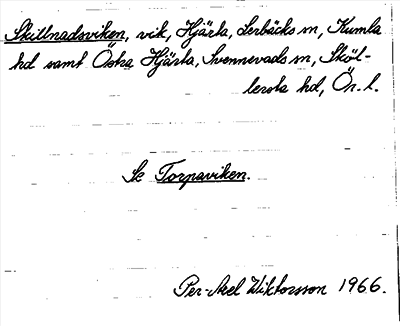 Skillnadsviken, vik, Hjärta, Lerbäcks sn, Kumla
hd samt Östra Hjärta, Svennevads sn, Sköl-
lersta hd, Ör. l.
Se Torpaviken.
Per-Axel Wiktorsson 1966.